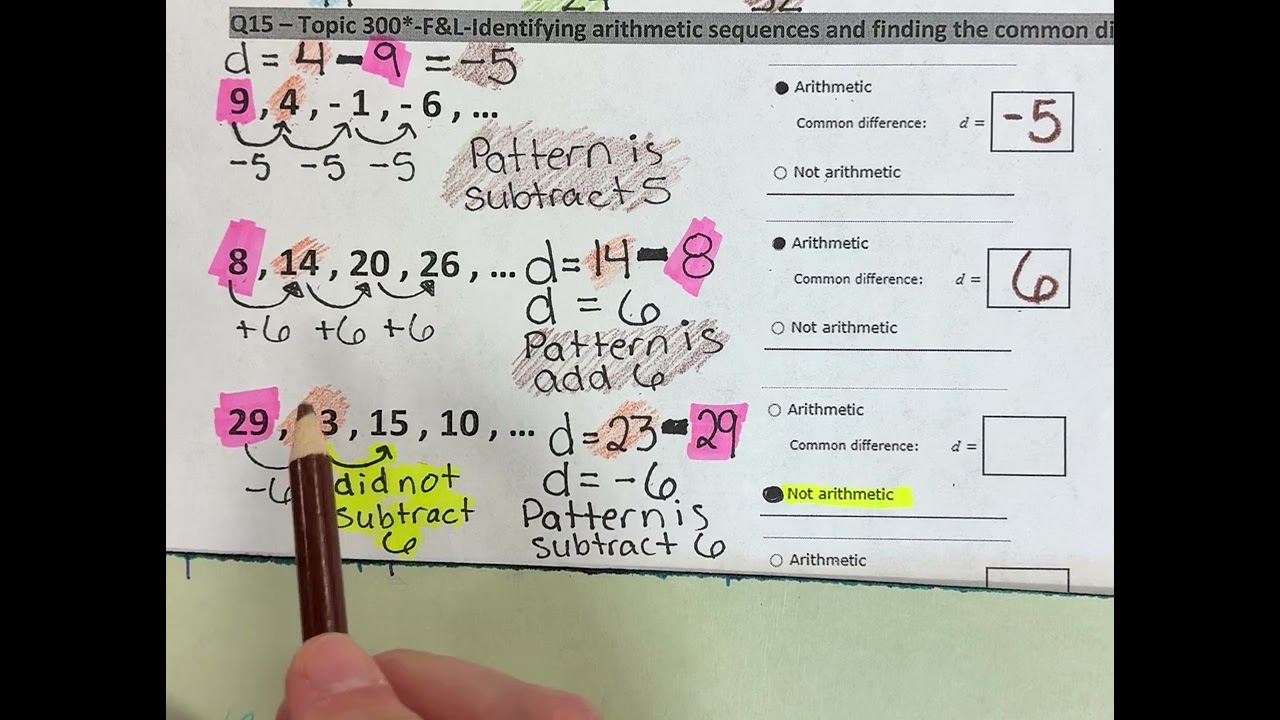 Q15 – Topic 300*-F&L-Identifying arithmetic sequences and finding the common di
d = 4 - 9 = -5
9, 4, -1, -6, ...
-5 -5 -5
Pattern is
subtract 5
Arithmetic
Common difference: d = -5
Not arithmetic
8, 14, 20, 26, ...
+6 +6 +6
d = 14 - 8
d = 6
Pattern is
add 6
Arithmetic
Common difference: d = 6
Not arithmetic
29, 3, 15, 10, ...
-6
did not
subtract
6
d = 23 - 29
d = -6
Pattern is
subtract 6
Arithmetic
Common difference: d =
Not arithmetic
Arithmetic